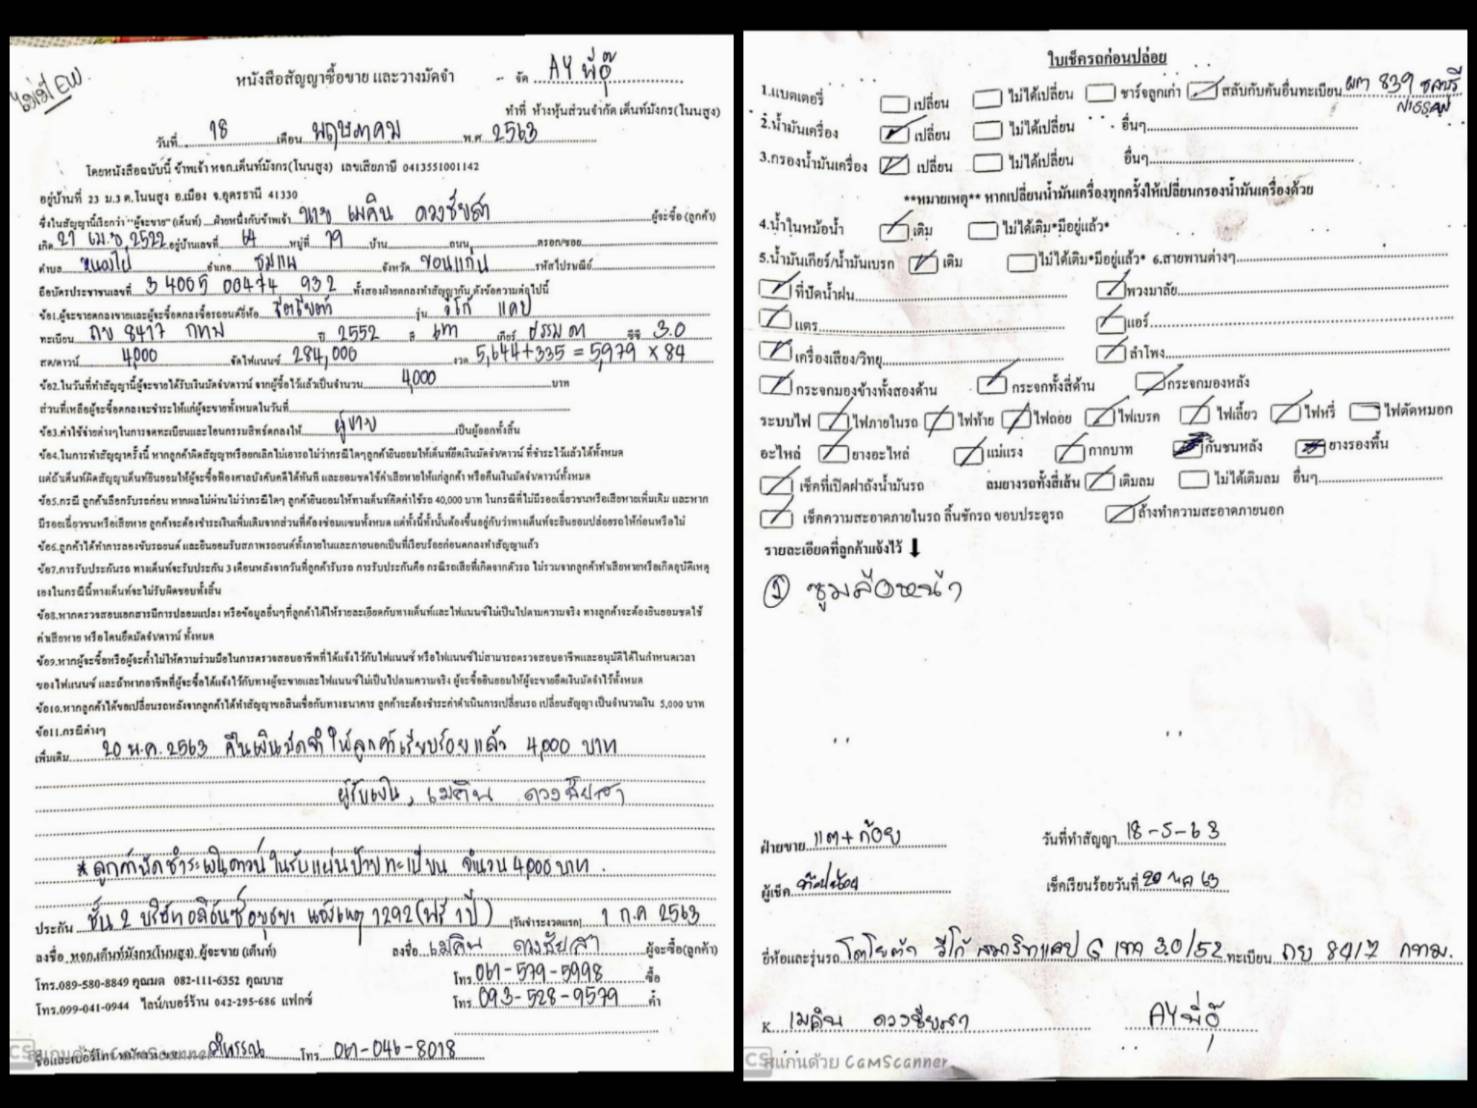 ไม่มี EW.
หนังสือสัญญาซื้อขาย และวางมัดจำ
จัด AY พี่อุ๊
ทำที่ ห้างหุ้นส่วนจำกัด เต็นท์มังกร(โนนสูง)
วันที่ 18 เดือน พฤษภาคม พ.ศ. 2563
โดยหนังสือฉบับนี้ ข้าพเจ้า หจก.เต็นท์มังกร(โนนสูง) เลขเสียภาษี 0413551001142
อยู่บ้านที่ 23 ม.3 ต.โนนสูง อ.เมือง จ.อุดรธานี 41330
ซึ่งในสัญญานี้เรียกว่า "ผู้จะขาย" (เต็นท์) ฝ่ายหนึ่งกับข้าพเจ้า นาย เมคิน ดวงชัยสา ผู้จะซื้อ (ลูกค้า)
เกิด 21 เม.ย 2522 อยู่บ้านเลขที่ 64 หมู่ที่ 19 บ้าน ถนน ตรอก/ซอย
ตำบล หนองไผ่ อำเภอ ชุมแพ จังหวัด ขอนแก่น รหัสไปรษณีย์
ถือบัตรประชาชนเลขที่ 3 4005 00474 932 ทั้งสองฝ่ายตกลงทำสัญญากัน ดังข้อความต่อไปนี้
ข้อ1.ผู้จะขายตกลงขายและผู้จะซื้อตกลงซื้อรถยนต์ยี่ห้อ รุ่น วีโก้ แคป
ทะเบียน ถย 8417 กทม ปี 2552 สี เทา เกียร์ ธรรมดา ซีซี 3.0
สด/ดาวน์ 4,000 จัดไฟแนนซ์ 284,000 งวด 5,644+335 = 5979 x 84
ข้อ2.ในวันที่ทำสัญญานี้ผู้จะขายได้รับเงินมัดจำ/ดาวน์ จากผู้ซื้อไว้แล้วเป็นจำนวน 4,000 บาท
ส่วนที่เหลือผู้จะซื้อตกลงจะชำระให้แก่ผู้จะขายทั้งหมดในวันที่
ข้อ3.ค่าใช้จ่ายต่างๆในการจดทะเบียนและโอนกรรมสิทธ์ตกลงให้ ผู้ขาย เป็นผู้ออกทั้งสิ้น
ข้อ4.ในการทำสัญญาครั้งนี้ หากลูกค้าผิดสัญญาหรือยกเลิกไม่เอารถ ไม่ว่ากรณีใดๆลูกค้ายินยอมให้เต็นท์ยึดเงินมัดจำ/ดาวน์ ที่ชำระไว้แล้วได้ทั้งหมด
แต่ถ้าเต็นท์ผิดสัญญาเต็นท์ยินยอมให้ผู้จะซื้อฟ้องศาลบังคับคดีได้ทันที และยอมชดใช้ค่าเสียหายให้แก่ลูกค้า หรือคืนเงินมัดจำ/ดาวน์ทั้งหมด
ข้อ5.กรณี ลูกค้าเลือกรับรถก่อน หากผลไม่ผ่าน ไม่ว่ากรณีใดๆ ลูกค้ายินยอมให้ทางเต็นท์คิดค่าใช้รถ 40,000 บาท ในกรณีที่ไม่มีรอยเฉี่ยวชนหรือเสียหายเพิ่มเติม และหาก
มีรอยเฉี่ยวชนหรือเสียหาย ลูกค้าจะต้องชำระเงินเพิ่มเติมจากส่วนที่ต้องซ่อมแซมทั้งหมด แต่ทั้งนี้ทั้งนั้นต้องขึ้นอยู่กับว่าทางเต็นท์จะยินยอมปล่อยรถให้ก่อนหรือไม่
ข้อ6.ลูกค้าได้ทำการลองขับรถยนต์ และยินยอมรับสภาพรถยนต์ทั้งภายในและภายนอกเป็นที่เรียบร้อยก่อนตกลงทำสัญญาแล้ว
ข้อ7.การรับประกันรถ ทางเต็นท์จะรับประกัน 3 เดือนหลังจากวันที่ลูกค้ารับรถ การรับประกันคือ กรณีรถเสียที่เกิดจากตัวรถ ไม่รวมจากลูกค้าทำเสียหายหรือเกิดอุบัติเหตุ
เองในกรณีนี้ทางเต็นท์จะไม่รับผิดชอบทั้งสิ้น
ข้อ8.หากตรวจสอบเอกสารมีการปลอมแปลง หรือข้อมูลอื่นๆที่ลูกค้าได้ให้รายละเอียดกับทางเต็นท์และไฟแนนซ์ไม่เป็นไปตามความจริง ทางลูกค้าจะต้องยินยอมชดใช้
ค่าเสียหาย หรือโดนยึดมัดจำ/ดาวน์ ทั้งหมด
ข้อ9.หากผู้จะซื้อหรือผู้จะค้ำไม่ให้ความร่วมมือในการตรวจสอบอาชีพที่ได้แจ้งไว้กับไฟแนนซ์ หรือไฟแนนซ์ไม่สามารถตรวจสอบอาชีพและอนุมัติได้ในกำหนดเวลา
ของไฟแนนซ์ และถ้าหากอาชีพที่ผู้จะซื้อได้แจ้งไว้กับทางผู้จะขายและไฟแนนซ์ไม่เป็นไปตามความจริง ผู้จะซื้อยินยอมให้ผู้จะขายยึดเงินมัดจำไว้ทั้งหมด
ข้อ10.หากลูกค้าได้ขอเปลี่ยนรถหลังจากลูกค้าได้ทำสัญญาขอสินเชื่อกับทางธนาคาร ลูกค้าจะต้องชำระค่าดำเนินการเปลี่ยนรถ เปลี่ยนสัญญา เป็นจำนวนเงิน 5,000 บาท
ข้อ11.กรณีต่างๆ
เพิ่มเติม 20 พ.ค. 2563 คืนเงินมัดจำ ให้ลูกค้าเรียบร้อยแล้ว 4,000 บาท
ผู้รับเงิน, เมคิน ดวงชัยสา
* ลูกค้านัดชำระเงินดาวน์ ในรับแผ่นป้ายทะเบียน จำนวน 4,000 บาท.
ประกัน ชั้น 2 บริษัท อลิอันซ์อยุธยา 1292 (ฟรี 1 ปี) (วันชำระงวดแรก) 1 ก.ค 2563
ลงชื่อ หจก.เต็นท์มังกร(โนนสูง) ผู้จะขาย (เต็นท์) ลงชื่อ เมคิน ดวงชัยสา ผู้จะซื้อ(ลูกค้า)
โทร.089-580-8849 คุณมด 082-111-6352 คุณบาส โทร. 061-579-5998 ซื้อ
โทร.099-041-0944 ไลน์/เบอร์ร้าน 042-295-686 แฟกซ์ โทร. 093-528-9579 ค้ำ
โทร. 061-046-8018
CS สแกนด้วย CamScanner
ใบเช็ครถก่อนปล่อย
1.แบตเตอรี่ เปลี่ยน ไม่ได้เปลี่ยน ชาร์จลูกเก่า สลับกับคันอื่นทะเบียน ผก 839 ชลบุรี
NISSAN
2.น้ำมันเครื่อง เปลี่ยน ไม่ได้เปลี่ยน อื่นๆ
3.กรองน้ำมันเครื่อง เปลี่ยน ไม่ได้เปลี่ยน อื่นๆ
**หมายเหตุ** หากเปลี่ยนน้ำมันเครื่องทุกครั้งให้เปลี่ยนกรองน้ำมันเครื่องด้วย
4.น้ำในหม้อน้ำ เติม ไม่ได้เติม*มีอยู่แล้ว*
5.น้ำมันเกียร์/น้ำมันเบรก เติม ไม่ได้เติม*มีอยู่แล้ว* 6.สายพานต่างๆ
ที่ปัดน้ำฝน พวงมาลัย
แตร แอร์
เครื่องเสียง/วิทยุ ลำโพง
กระจกมองข้างทั้งสองด้าน กระจกทั้งสี่ด้าน กระจกมองหลัง
ระบบไฟ ไฟภายในรถ ไฟท้าย ไฟถอย ไฟเบรค ไฟเลี้ยว ไฟหรี่ ไฟตัดหมอก
อะไหล่ ยางอะไหล่ แม่แรง กากบาท กันชนหลัง ยางรองพื้น
เช็คที่เปิดฝาถังน้ำมันรถ ลมยางรถทั้งสี่เส้น เติมลม ไม่ได้เติมลม อื่นๆ
เช็คความสะอาดภายในรถ ลิ้นชักรถ ขอบประตูรถ ล้างทำความสะอาดภายนอก
รายละเอียดที่ลูกค้าแจ้งไว้
① ซุ้มล้อหน้า
ฝ่ายขาย แต+ก้อย วันที่ทำสัญญา 18-5-63
ผู้เช็ค เช็คเรียบร้อยวันที่ 20 พค 63
ยี่ห้อและรุ่นรถ โตโยต้า วีโก้ สมาร์ทแคป G เทา 3.0/52 ทะเบียน ถย 8417 กทม.
K เมคิน ดวงชัยสา AY พี่อุ๊
CS สแกนด้วย CamScanner